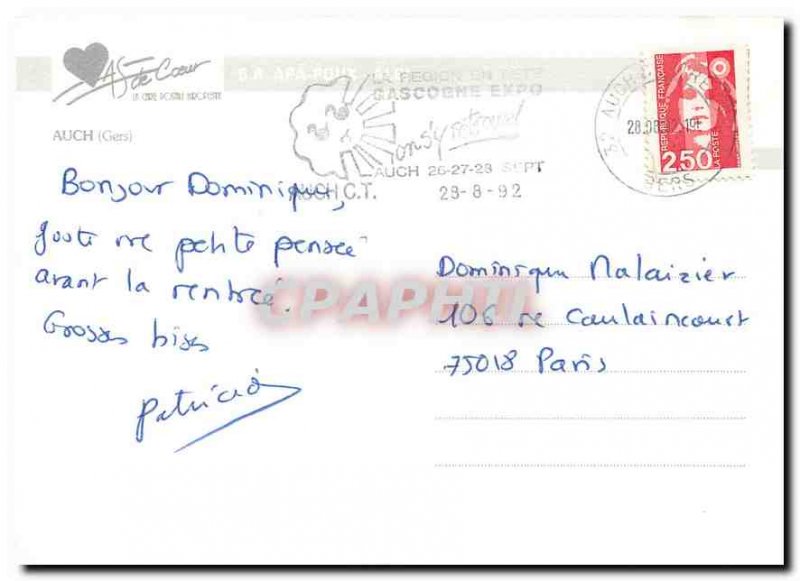 AS de Cœur
AUCH (Gers)
LA REGION EN FETE
GASCOGNE EXPO
on s'y retrouve!
AUCH 26-27-28 SEPT
AUCH C.T. 28-8-92
32 AUCH
28.08
GERS
REPUBLIQUE FRANÇAISE
LA POSTE
2,50
Bonjour Dominique,
juste une petite pensée
avant la rentrée.
Grosses bises
Patricia
Dominique Malaizier
106 rue Caulaincourt
75018 Paris
CPAPHIL